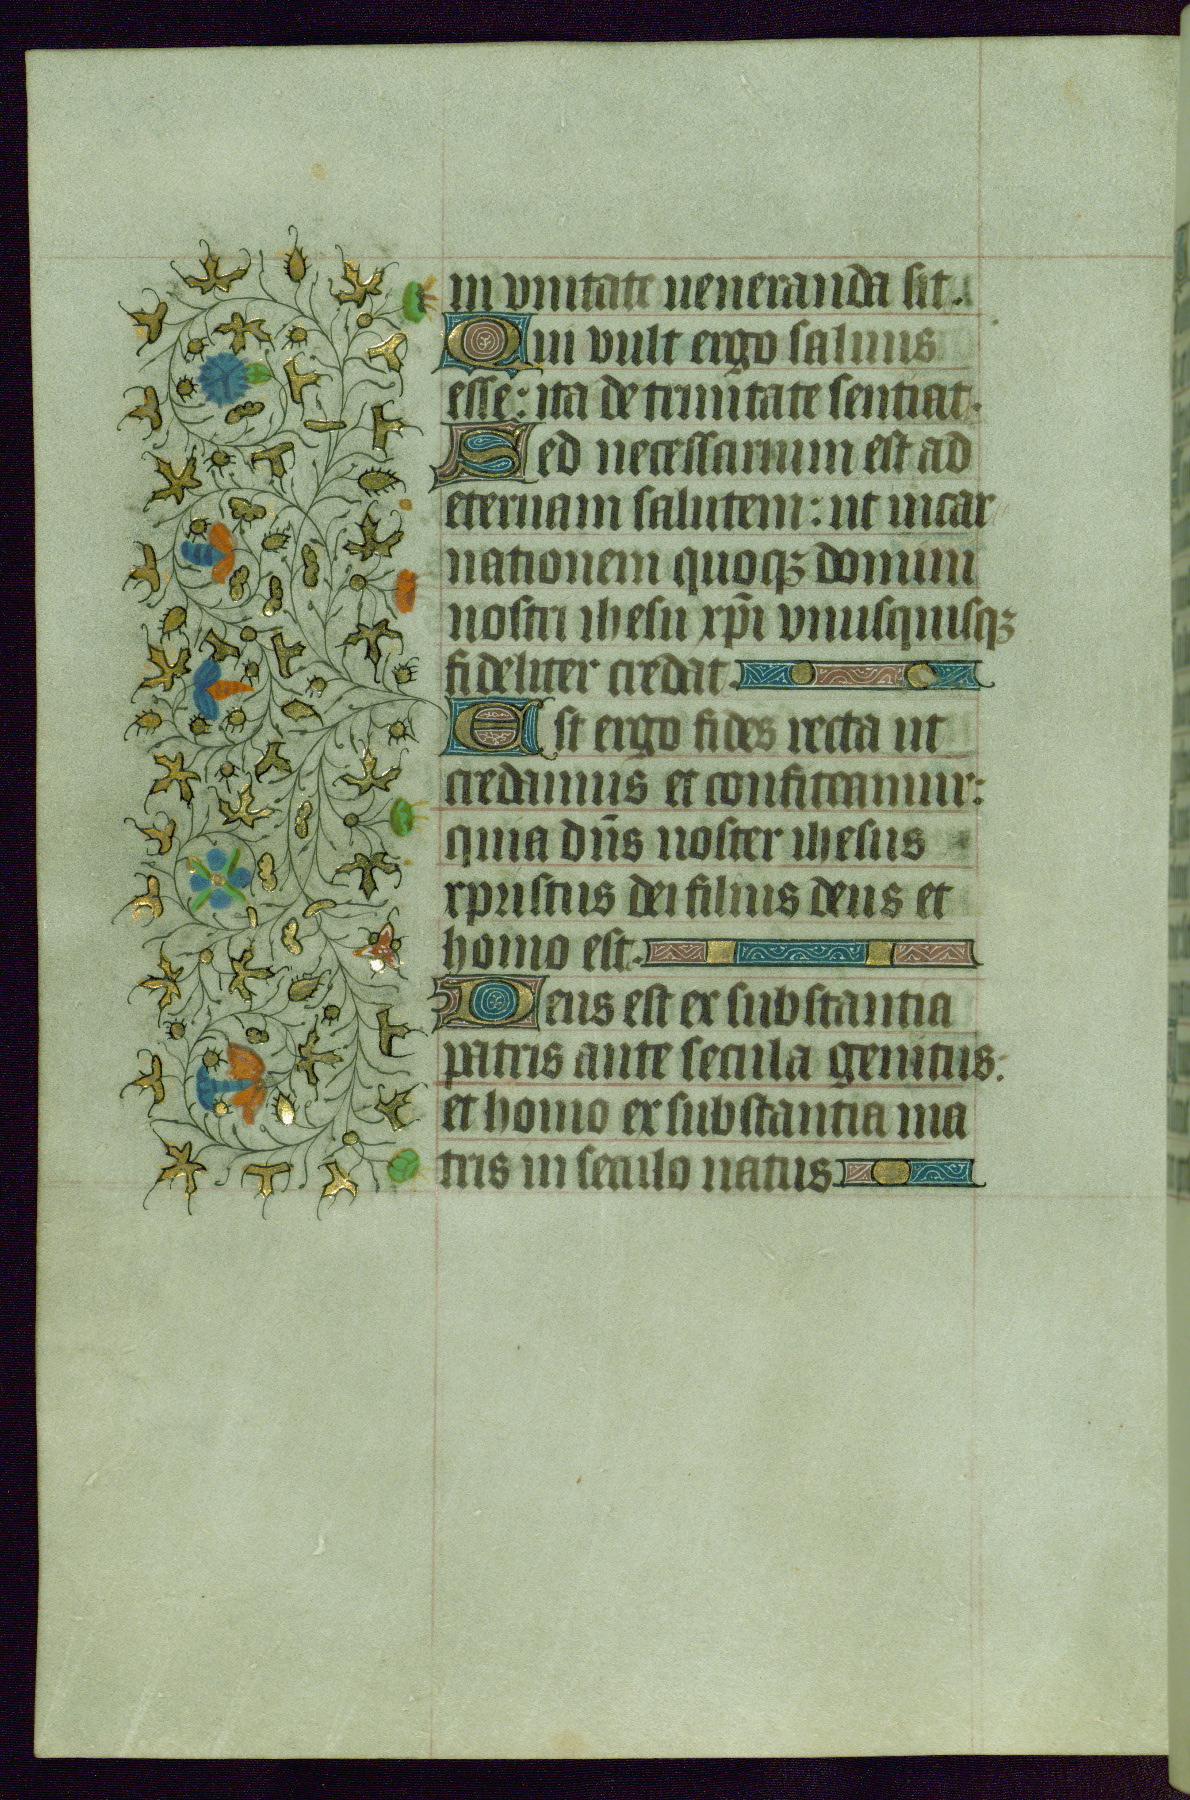 in vnitate ueneranda sit.
Qui vult ergo saluus
esse: ita de trinitate sentiat.
Sed necessarium est ad
eternam salutem: ut incar
nationem quoqꝫ domini
nostri ihesu xp̄i vnusquisqꝫ
fideliter credat.
Est ergo fides recta ut
credamus et confiteamur:
quia dn̄s noster ihesus
xpristus dei filius deus et
homo est.
Deus est ex substantia
patris ante secula genitus:
et homo ex substantia ma
tris in seculo natus